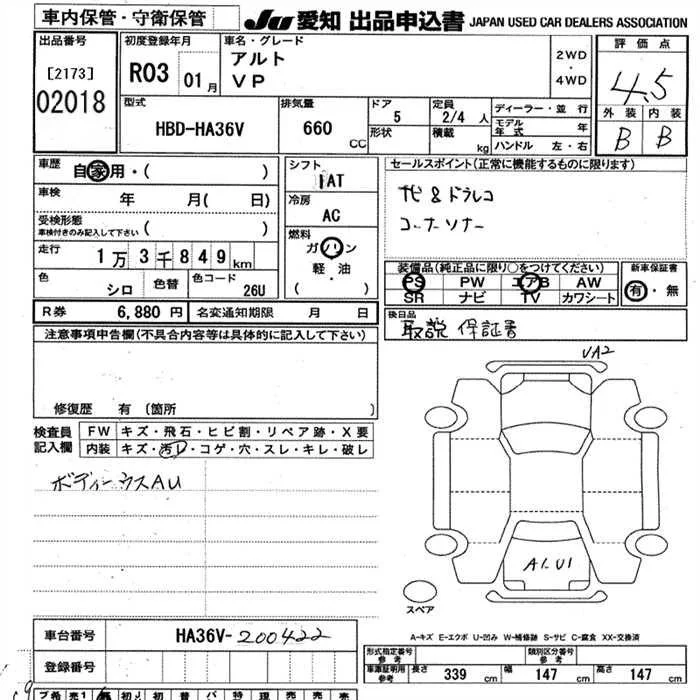 車内保管・守衛保管
JU 愛知 出品申込書 JAPAN USED CAR DEALERS ASSOCIATION
出品番号
[2173]
02018
初度登録年月
R03 01月
車名・グレード
アルト
VP
2WD
・
4WD
評価点
4.5
外装 内装
B B
型式
HBD-HA36V
排気量
660 CC
ドア
5
形状
定員
2/4 人
積載 kg
ディーラー・並行
モデル年式 年
ハンドル 左・右
車歴 自家用・( )
車検 年 月( 日)
受検形態
車検付きのみ記入して下さい ( )
走行 1万3千849km
色 シロ 色替 色コード 26U
シフト
IAT
冷房
AC
燃料
ガソリン
軽・油
( )
セールスポイント(正常に機能するものに限ります)
ドラレコ
コーナーソナー
装備品(純正品に限り○をつけてください)
PS PW エアB AW
SR ナビ TV カワシート
新車保証書
有・無
R券 6,880円 名変通知期限 月 日
後日品 取説 保証書
注意事項申告欄(不具合内容等は具体的に記入して下さい)
修復歴 有 〔箇所 〕
検査員記入欄
FW キズ・飛石・ヒビ割・リペア跡・X要
内装 キズ・汚レ・コゲ・穴・スレ・キレ・破レ
ボディーウスAU
UA2
A1.U1
スペア
A-キズ E-エクボ U-凹み W-補修跡 S-サビ C-腐食 XX-交換済
車台番号 HA36V-200422
登録番号
形式指定番号 参考
類別区分番号 参考
車庫証明用 参考 長さ 339 cm 幅 147 cm 高さ 147 cm